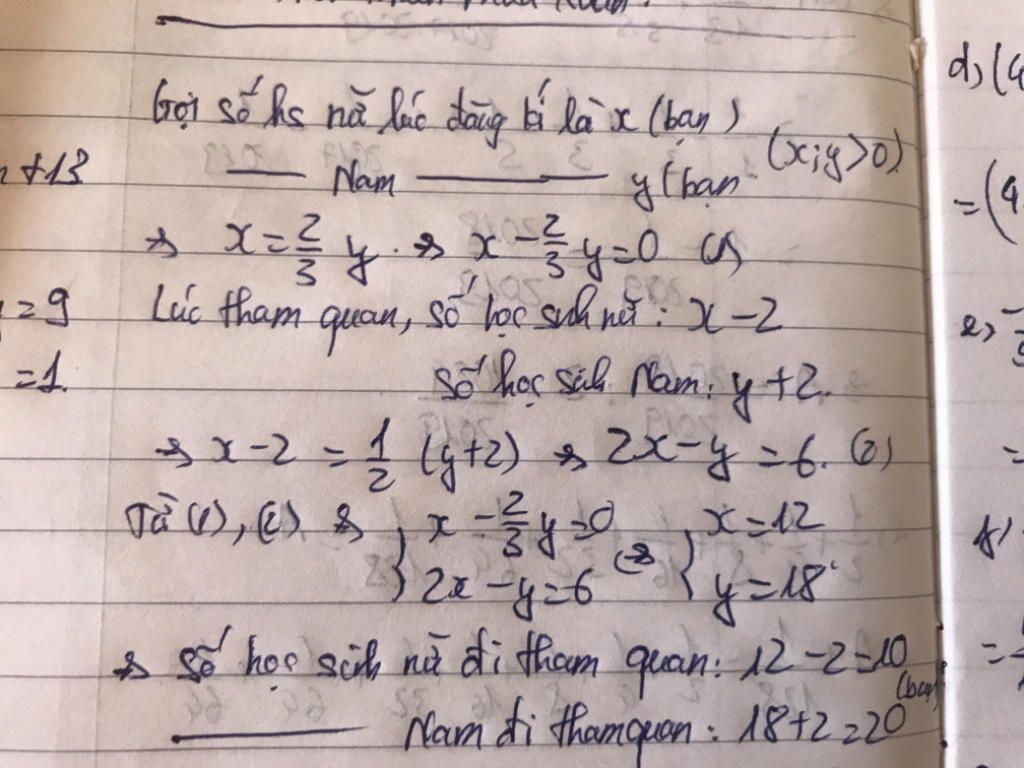 Gọi số hs nữ lúc đăng kí là x (bạn)
(x;y>0)
—— Nam ———— y (bạn
=> x = 2/3 y. => x - 2/3 y = 0 (1)
Lúc tham quan, số học sinh nữ: x - 2
số học sinh Nam: y + 2.
=> x - 2 = 1/2 (y+2) => 2x - y = 6. (2)
Từ (1), (2) => { x - 2/3 y = 0 <=> { x = 12
2x - y = 6 y = 18
=> số học sinh nữ đi tham quan: 12 - 2 = 10
(bạn)
———— Nam đi tham quan: 18 + 2 = 20
+13
= 9
= 1.
d, (4
= (4.
e,
f)
=